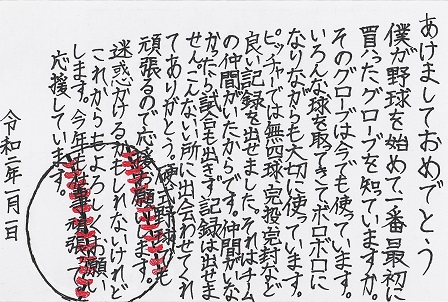 あけましておめでとう
僕が野球を始めて一番最初に
買ったグローブを知っていますか。
そのグローブは今でも使っています。
いろんな球を取ってきてボロボロに
なりながらも大切に使っています。
ピッチャーでは無四球、完投、完封など
良い記録を出せました。それはチーム
の仲間がいたからです。仲間がいな
かったら試合も出きず記録は出せま
せん。こんないい所に出会わせてくれ
てありがとう。硬式野球でも
頑張るので応援お願いします。
迷惑かけるかもしれないけれど
これからもよろしくお願い
します。今年も仕事頑張って
応援しています。
令和二年一月一日